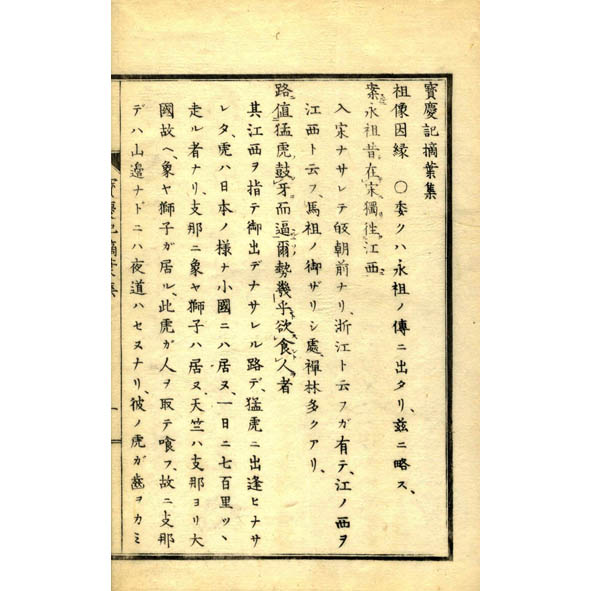 寳慶記摘葉集
祖像因縁 〇委クハ永祖ノ傳ニ出タリ、玆ニ略ス、
案永祖昔在宋獨徃江西
入宋ナサレテ皈朝前ナリ、浙江ト云フガ有テ、江ノ西ヲ
江西ト云フ、馬祖ノ御ザリシ處、禪林多クアリ、
路値猛虎鼓牙而逼爾勢幾乎欲食人者
其江西ヲ指テ御出デナサレル路デ、猛虎ニ出逢ヒナサ
レタ、虎ハ日本ノ様ナ小國ニハ居ヌ、一日ニ七百里ツヽ
走ル者ナリ、支那ニ象ヤ獅子ハ居ヌ、天竺ハ支那ヨリ大
國故ヘ、象ヤ獅子ガ居ル、此虎ガ人ヲ取テ喰フ、故ニ支那
デハ山邉ナドニハ夜道ハセヌナリ、彼ノ虎ガ齒ヲカミ
寳慶記摘葉集 一